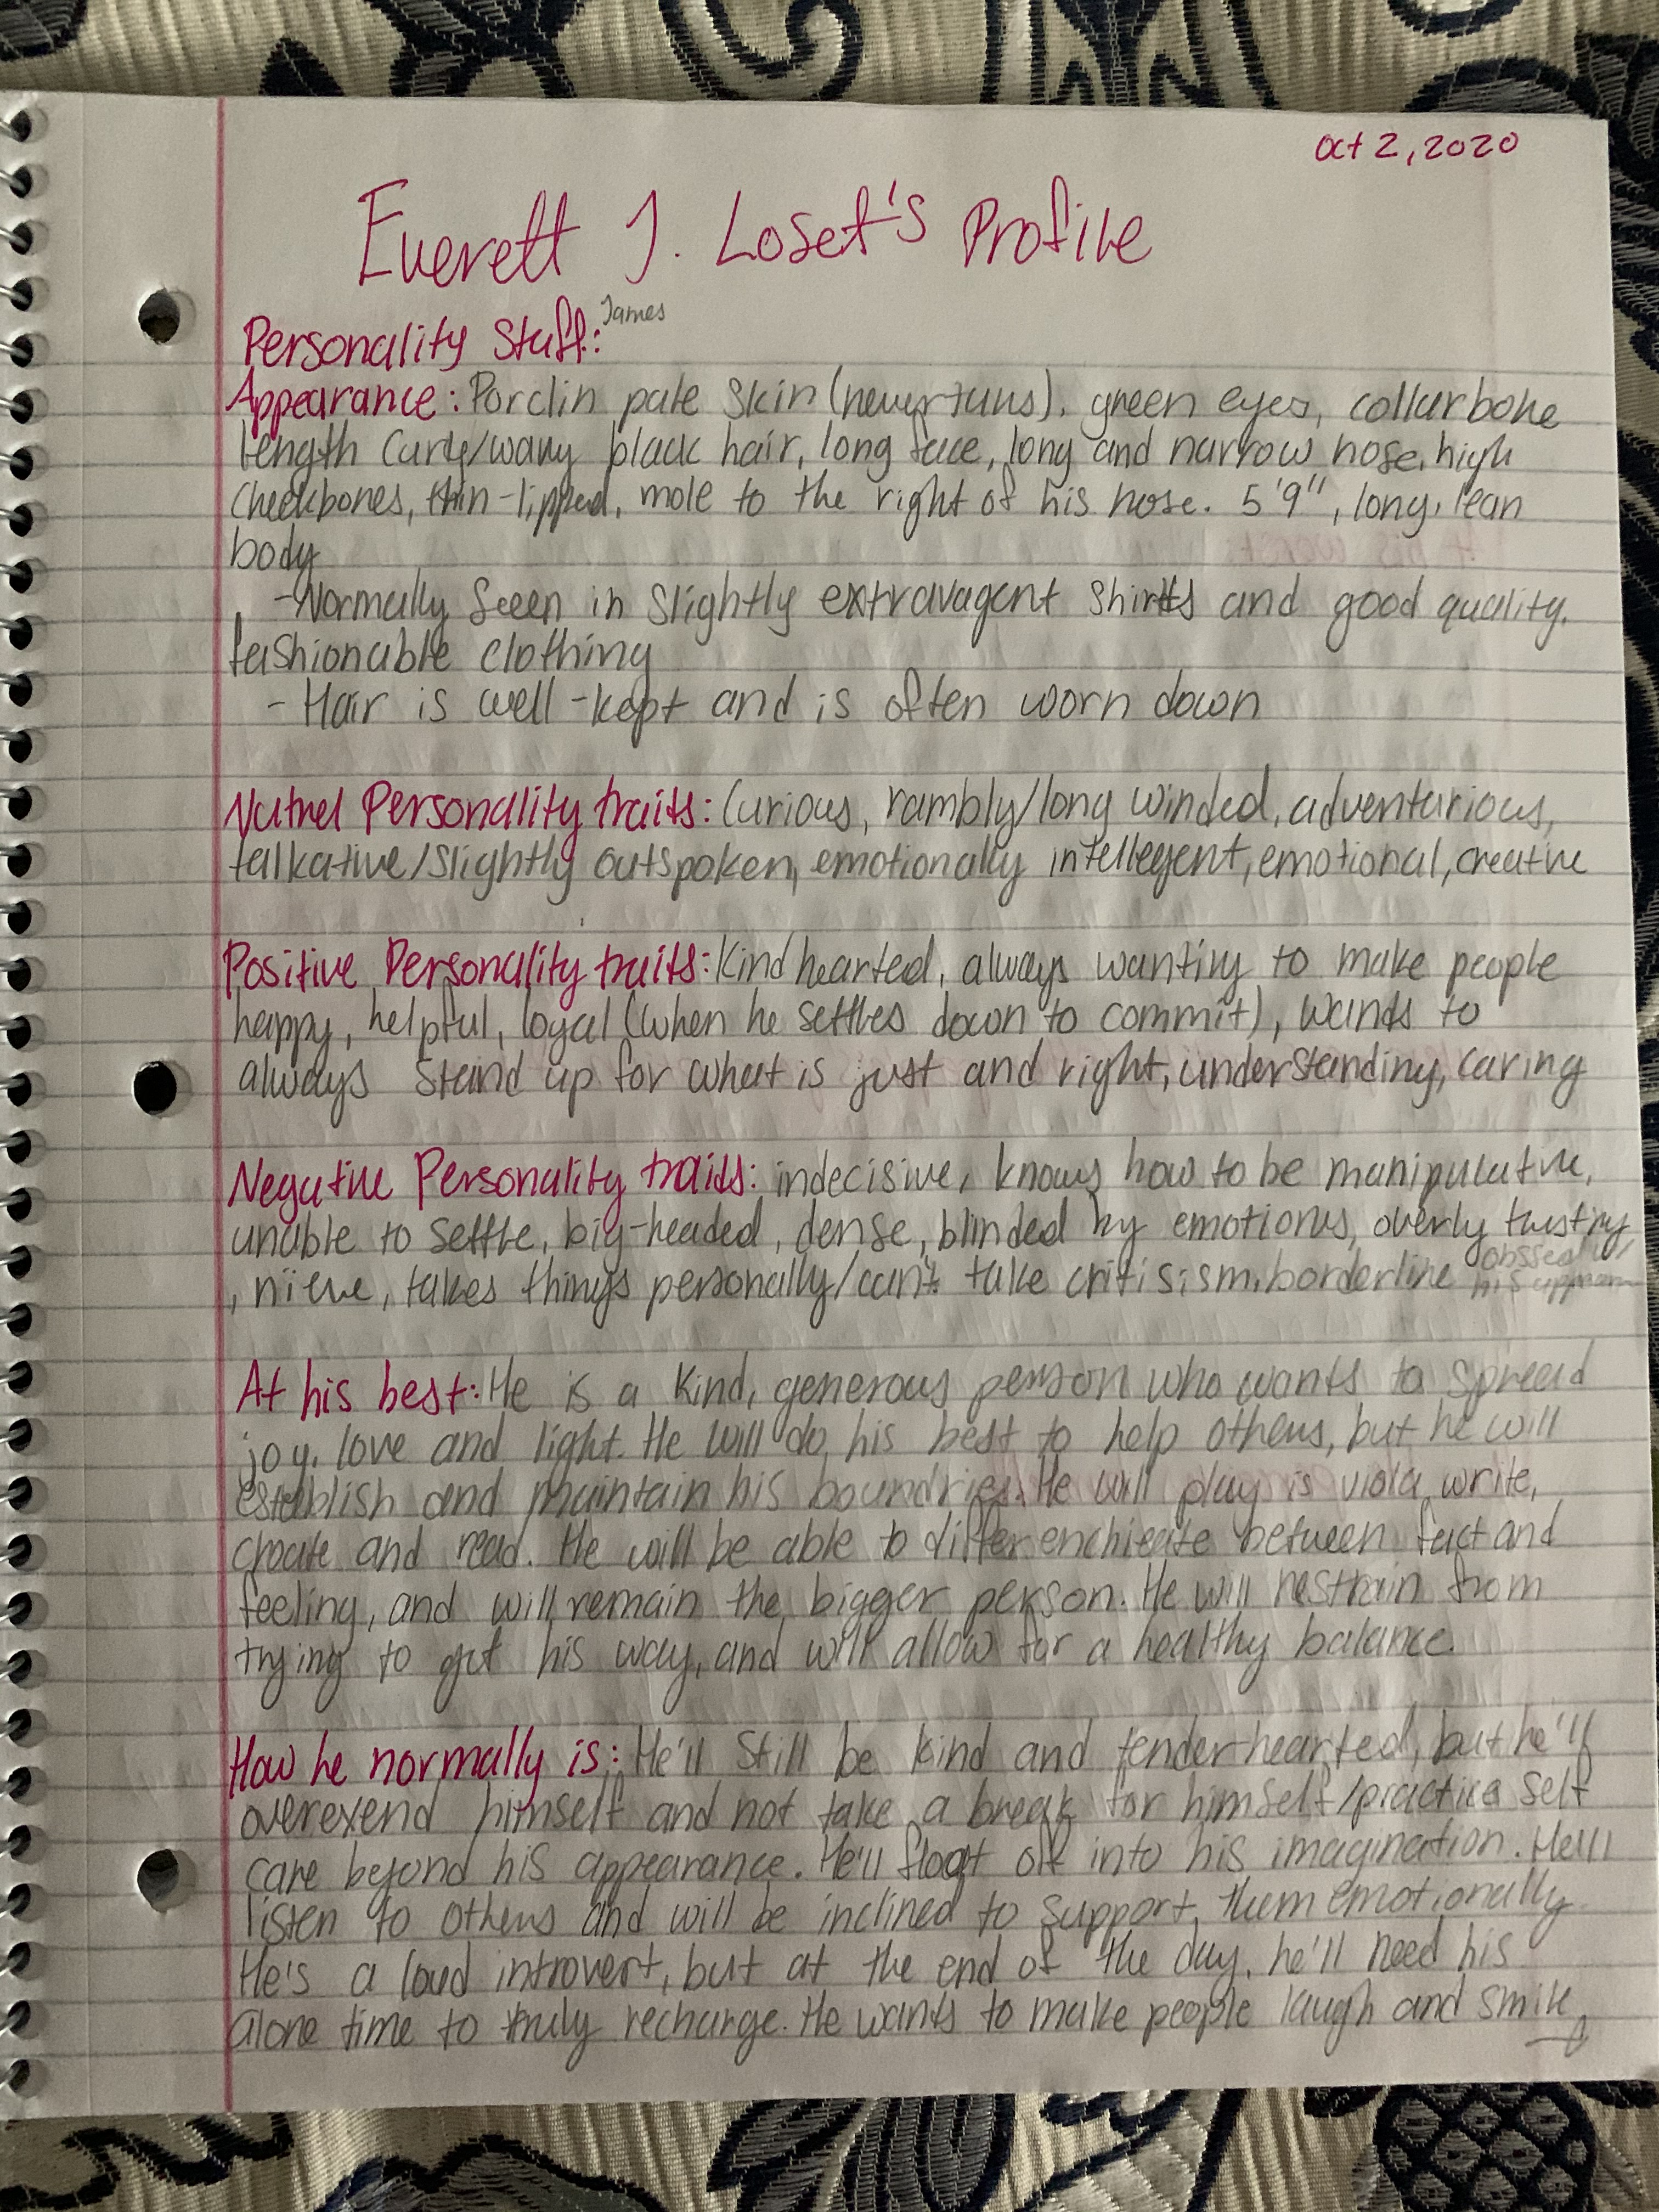 Oct 2, 2020
Everett J. Loset's Profile
James
Personality Stuff:
Appearance: Porclin pale skin (never tans), green eyes, collarbone
length curly/wavy black hair, long face, long and narrow nose, high
cheekbones, thin-lipped, mole to the right of his nose. 5'9", long, lean
body
-Normally seeen in slightly extravagent shirts and good quality,
fashionable clothing
- Hair is well-kept and is often worn down
Nutrel Personality traits: Curious, rambly/long winded, adventurious,
talkative/slightly outspoken, emotionally intellegent, emotional, creative
Positive Personality traits: Kind hearted, always wanting to make people
happy, helpful, loyal (when he settles down to commit), wants to
always stand up for what is just and right, understanding, caring
Negative Personality traits: indecisive, knows how to be manipulative,
unable to settle, big-headed, dense, blinded by emotions, overly trusting
, nieve, takes things personally/can't take critisism, borderline obssed w/
his appearan
At his best: He is a kind, generous person who wants to spread
joy, love and light. He will do his best to help others, but he will
establish and maintain his boundries. He will play is viola, write,
create and read. He will be able to differenchieate between fact and
feeling, and will remain the bigger person. He will restrain from
trying to get his way, and will allow for a healthy balance.
How he normally is: He'll still be kind and tenderhearted, but he'll
overexend himself and not take a break for himself/practice self
care beyond his appearance. He'll float off into his imagination. He'll
listen to others and will be inclined to support them emotionally.
He's a loud introvert, but at the end of the day, he'll need his
alone time to truly recharge. He wants to make people laugh and smile